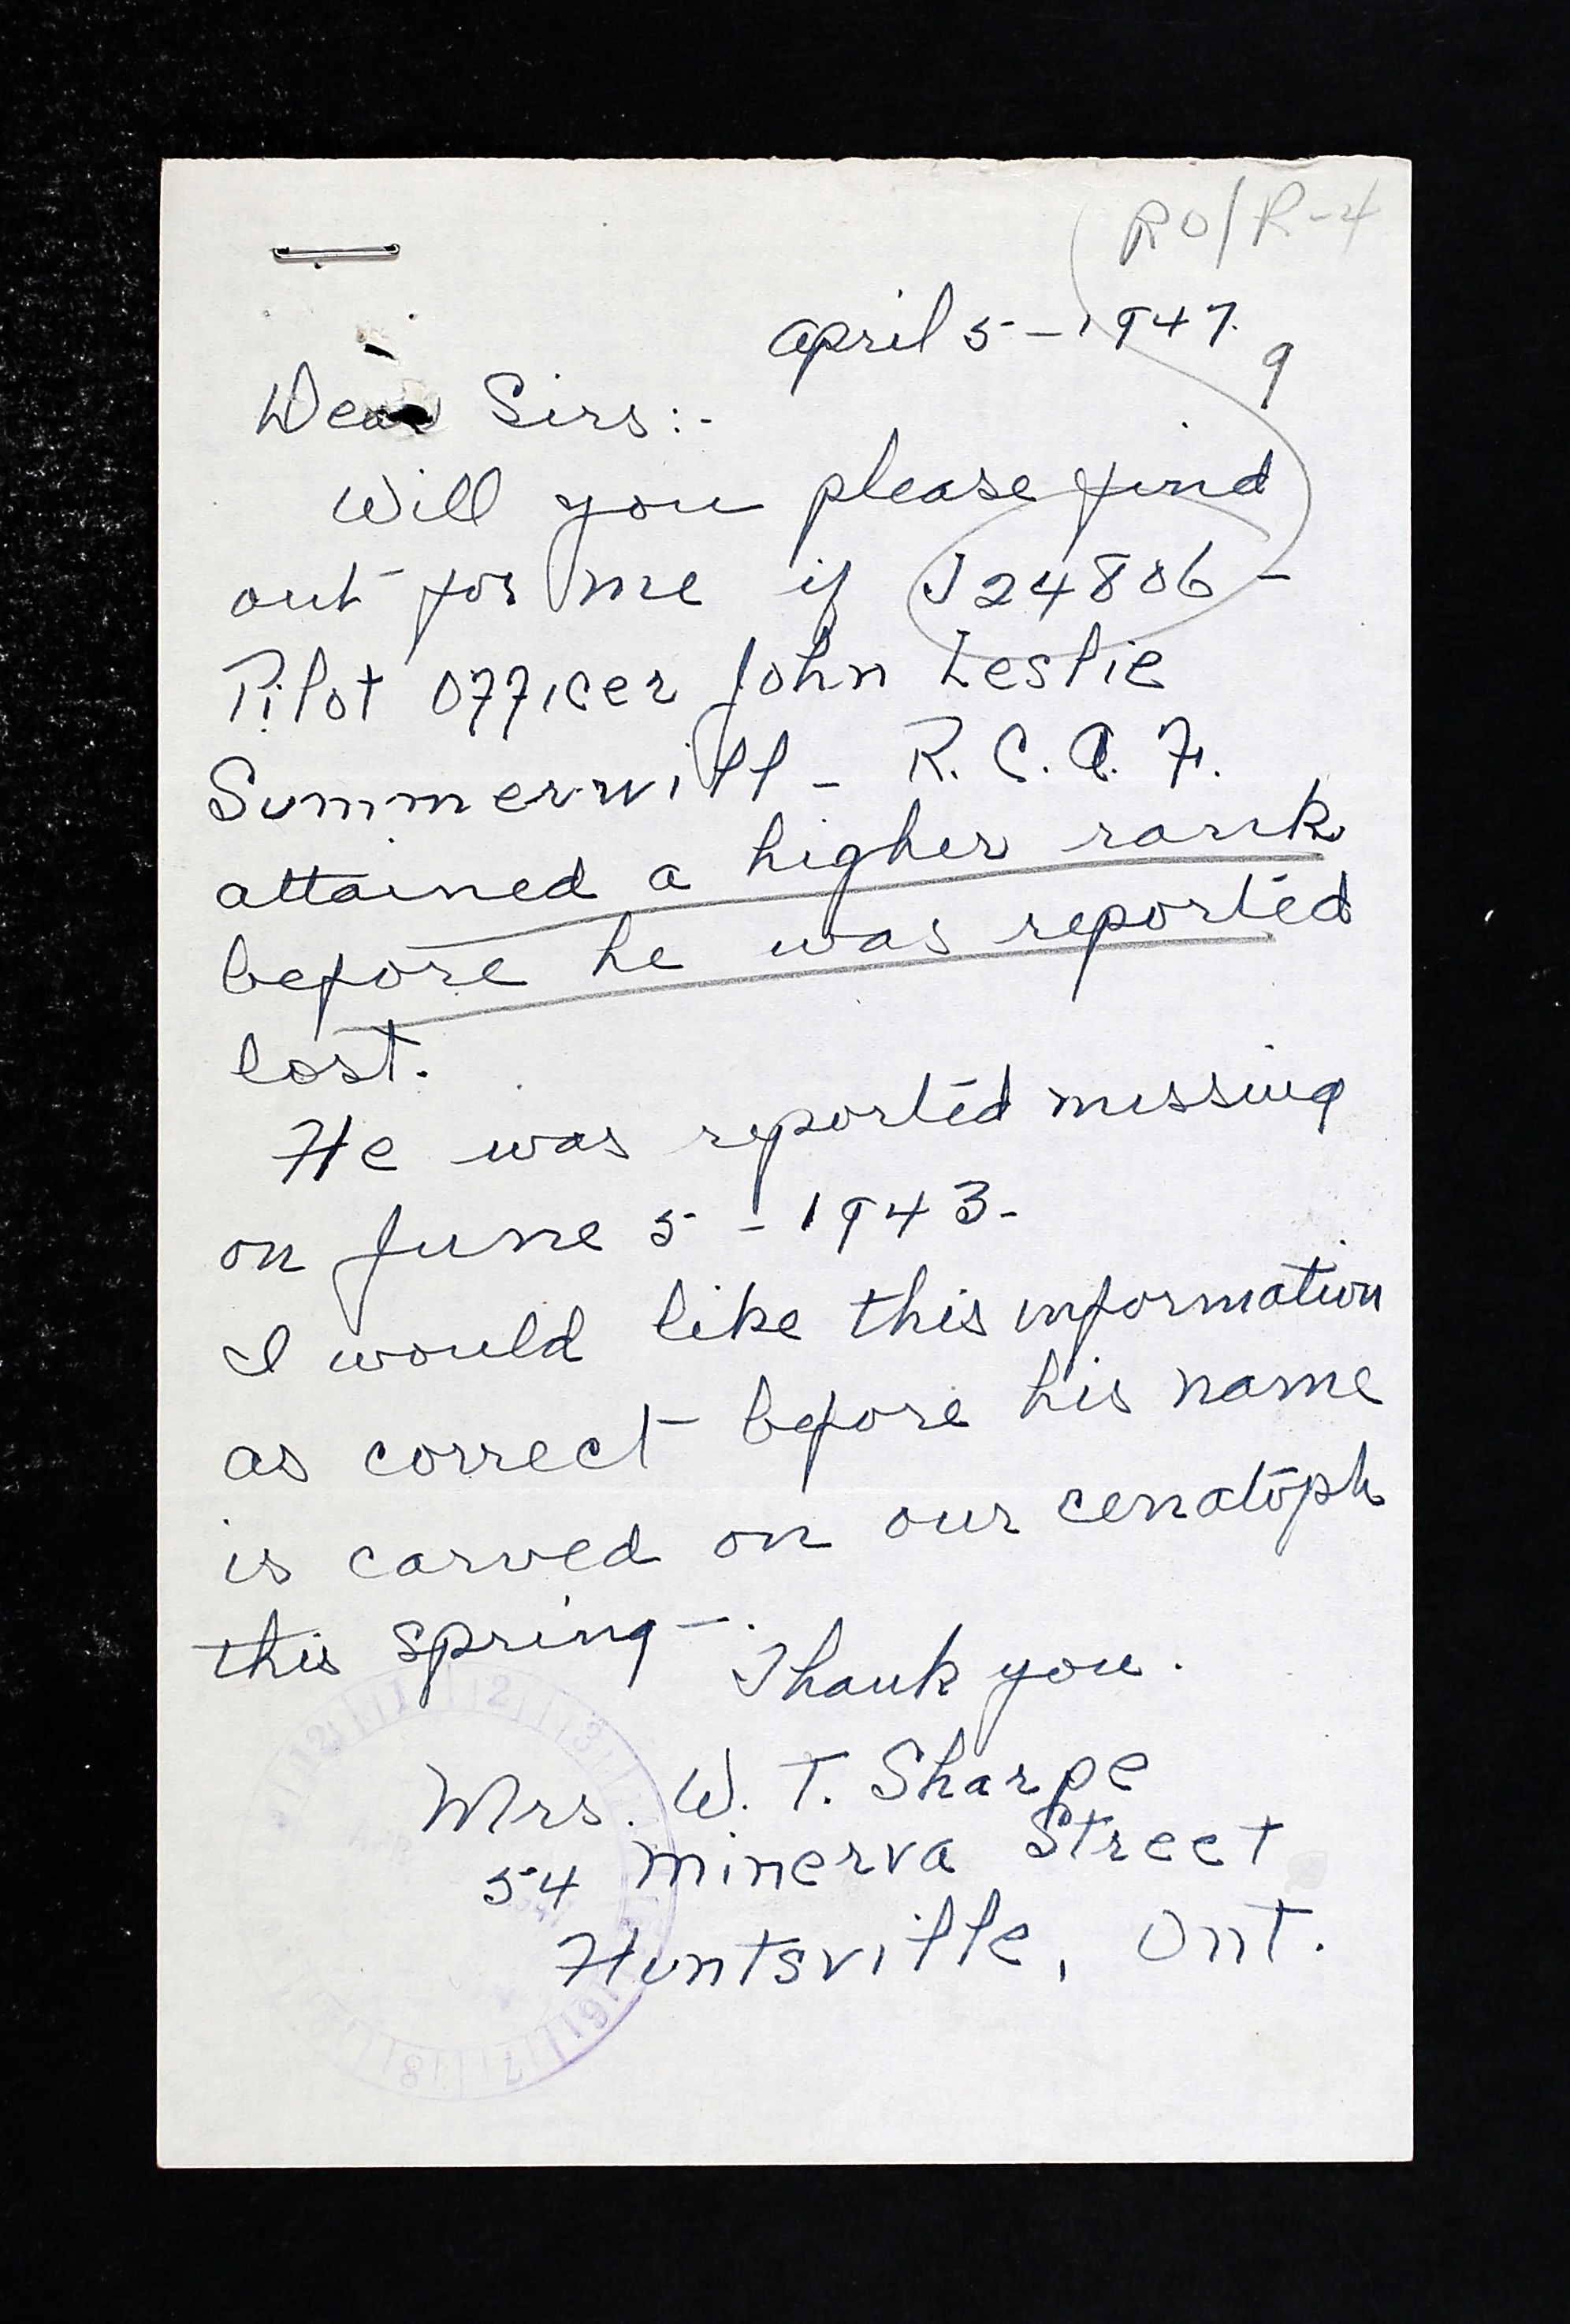 RO/R-4
April 5-1947.
9
Dear Sirs:-
Will you please find
out for me if J24806-
Pilot Officer John Leslie
Summerwill - R.C.A.F.
attained a higher rank
before he was reported
lost.
He was reported missing
on June 5 - 1943-
I would like this information
as correct before his name
is carved on our cenatoph
this spring-.
Thank you.
Mrs. W. T. Sharpe
54 Minerva Street
Huntsville, Ont.
12 1 2 3
6 7 8